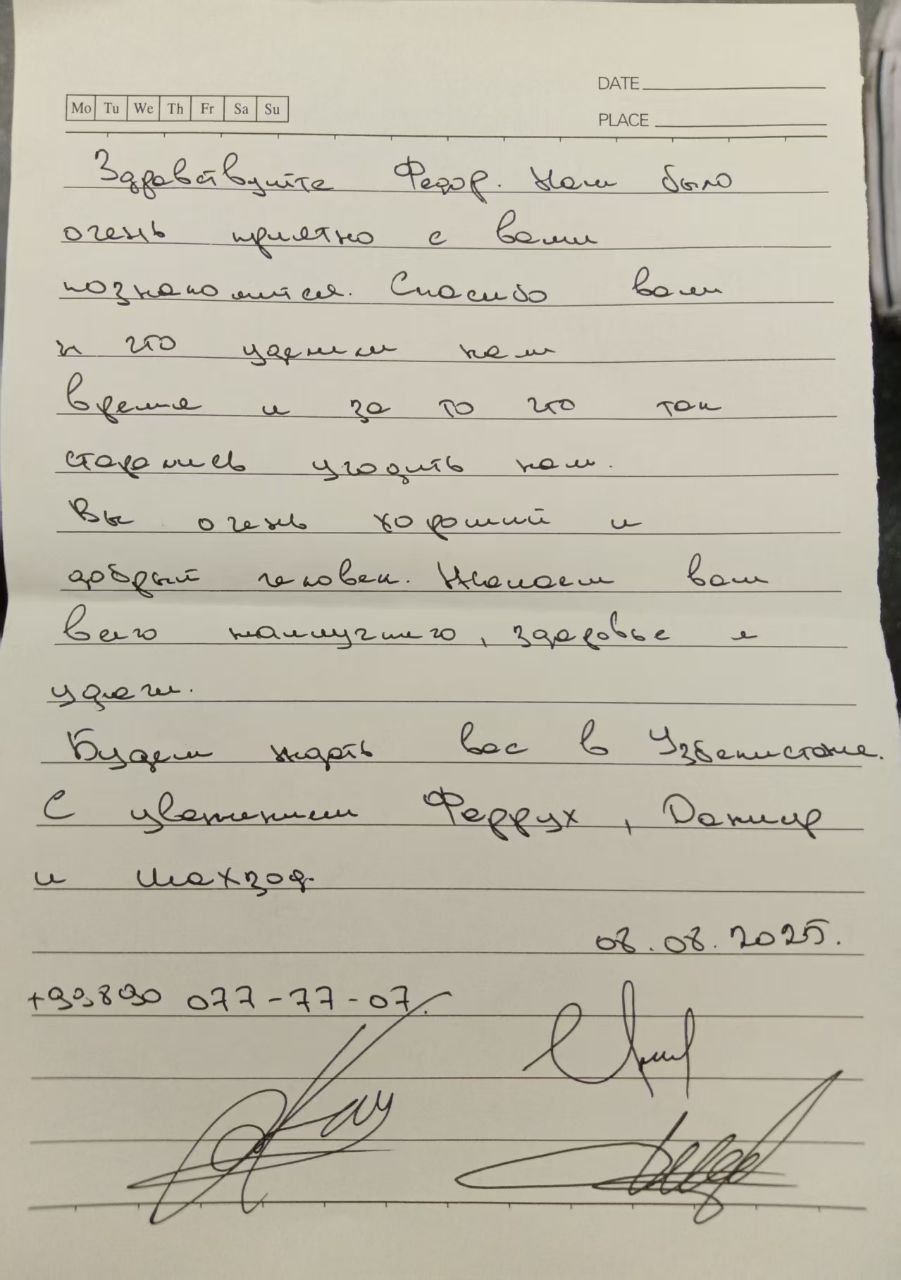 Mo Tu We Th Fr Sa Su
DATE
PLACE
Здравствуйте Федор. Нам было
очень приятно с вами
познакомится. Спасибо вам
и что уделили нам
время и за то что так
старались угодить нам.
Вы очень хороший и
добрый человек. Желаем вам
всего наилучшего, здоровье и
удачи.
Будем ждать вас в Узбекистане.
С уважением Феррух, Данир
и Шахзод.
08.08.2025.
+99890 077-77-07.